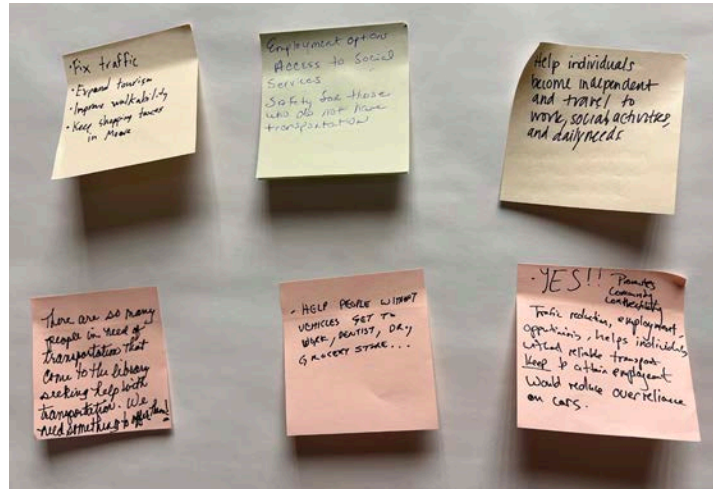 · Fix traffic
· Expand tourism
· Improve walkability
· Keep shopping taxes
in Moore
Employment options
Access to Social
Services
Safety for those
who do not have
transportation
Help individuals
become independent
and travel to
work, social activities,
and daily needs
There are so many
people in need of
transportation that
come to the library
seeking help with
transportation. We
need something to offer them!
· HELP PEOPLE WITHOUT
VEHICLES GET TO
WORK, DENTIST, DR.,
GROCERY STORE...
· YES!! Promotes
Community
connectivity
Traffic reduction, employment
opportunities, helps individuals
without reliable transport
Keep & attain employment
Would reduce overreliance
on cars.